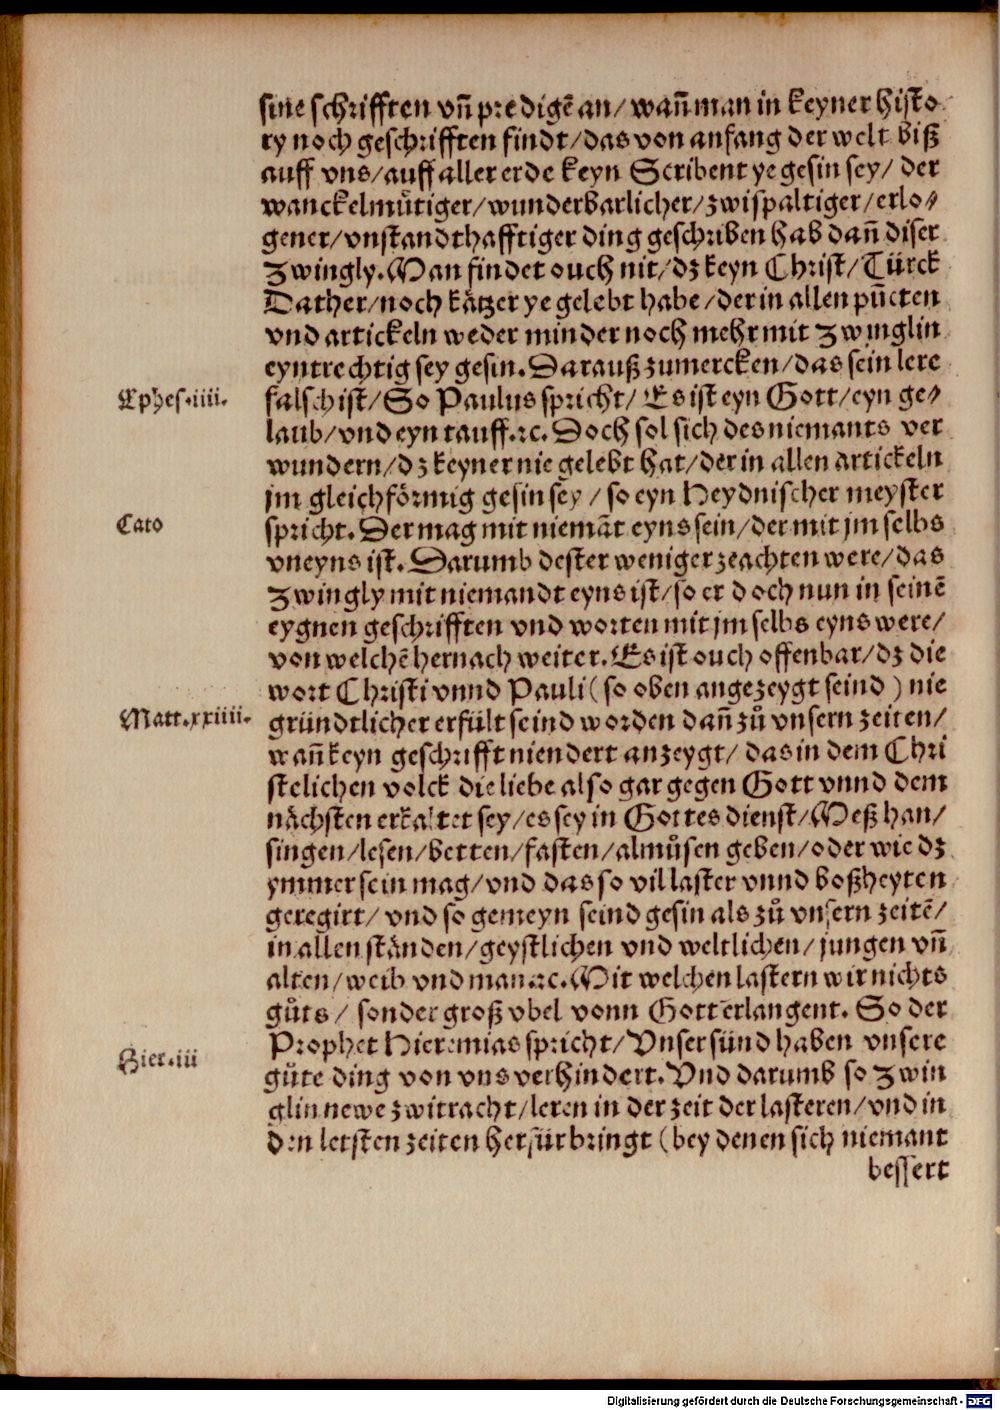 sine schrifften vñ predigē an/ wañ man in keyner histo
ry noch geschrifften findt/das von anfang der welt biß
auff vns/auff aller erde keyn Scribent ye gesin sey/ der
wanckelmuͤtiger/wunderbarlicher/zwispaltiger/erlo⸗
gener/vnstandthafftiger ding geschriben hab dañ diser
Zwingly. Man findet ouch nit/dz keyn Christ/Türck
Dather/noch kätzer ye gelebt habe/der in allen pūcten
vnd artickeln weder minder noch mehr mit Zwinglin
eyntrechtig sey gesin. Darauß zumercken/das sein lere
Ephes.iiii.
falsch ist/So Paulus spricht/ Es ist eyn Gott/eyn ge⸗
laub/vnd eyn tauff.ꝛc. Doch sol sich des niemants ver
wundern/dz keyner nie gelebt hat/der in allen artickeln
jm gleichförmig gesin sey/ so eyn Heydnischer meyster
Cato
spricht. Der mag mit niemāt eyns sein/der mit jm selbs
vneyns ist. Darumb dester weniger zeachten were/das
Zwingly mit niemandt eyns ist/so er doch nun in seinē
eygnen geschrifften vnd worten mit jm selbs eyns were/
von welchē hernach weiter. Es ist ouch offenbar/dz die
wort Christi vnnd Pauli (so oben angezeygt seind) nie
Matt.xxiiii.
gründtlicher erfült seind worden dañ zů vnsern zeiten/
wañ keyn geschrifft niendert anzeygt/ das in dem Chri
stelichen volck die liebe also gar gegen Gott vnnd dem
nächsten erkaltet sey/es sey in Gottes dienst/Meß han/
singen/lesen/betten/fasten/almůsen geben/oder wie dz
ymmer sein mag/vnd das so vil laster vnnd boßheyten
geregirt/ vnd so gemeyn seind gesin als zů vnsern zeitē/
in allen ständen/geystlichen vnd weltlichen/jungen vñ
alten/weib vnd man.ꝛc. Mit welchen lastern wir nichts
gůts/ sonder groß vbel vonn Gott erlangent. So der
Prophet Hieremias spricht/Vnser sünd haben vnsere
Hier.iii
gůte ding von vns verhindert. Vnd darumb so Zwin
glin newe zwitracht/leren in der zeit der lasteren/vnd in
den letsten zeiten hersür bringt (bey denen sich niemant
bessert
Digitalisierung gefördert durch die Deutsche Forschungsgemeinschaft - DFG